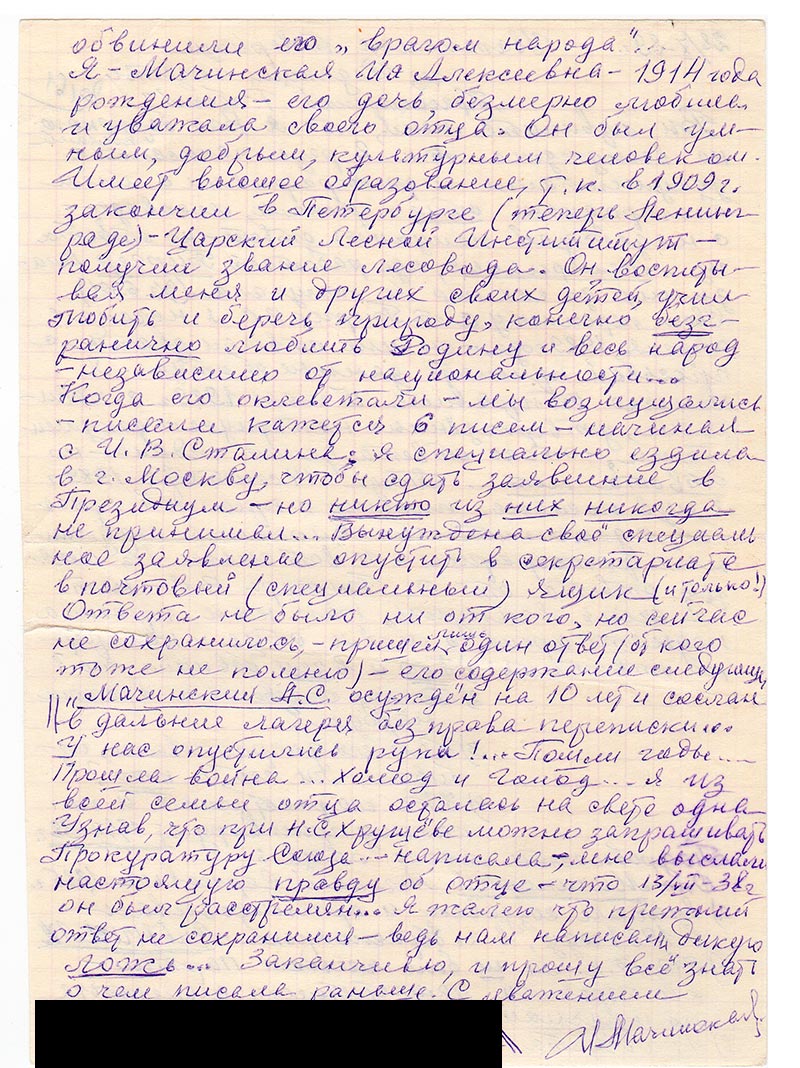 обвинили его „врагом народа".
Я - Мачинская Ия Алексеевна - 1914 года
рождения - его дочь, безмерно любила
и уважала своего отца. Он был ум-
ным, добрым, культурным человеком.
Имеет высшое образование, т.к. в 1909 г.
закончил в Петербурге (теперь Ленин-
граде) - Царский Лесной Институт -
получил звание лесовода. Он воспиты-
вая меня и других своих детей, учил
любить и беречь природу, конечно безг-
ранично любить Родину и весь народ
- независимо от национальности...
Когда его оклеветали - мы возмущались
- писали кажется 6 писем - начиная
с И. В. Сталина. Я специально ездила
в г. Москву, чтобы сдать заявление в
Президиум - но никто из них никогда
не принимал... Вынуждена своё специаль
ное заявление опустить в секретариате
в почтовый (специальный) ящик (и только!)
Ответа не было ни от кого, но сейчас
не сохранилось, - пришёл лишь один ответ (от кого
тоже не помню) - его содержание следующи,
„Мачинский А.С. осуждён на 10 лет и сослан
в дальние лагеря без права переписки...
У нас опустились руки!... Пошли годы....
Прошла война... холод и голод... я из
всей семьи отца осталась на свете одна
Узнав, что при Н.С. Хрущёве можно запрашивать
Прокуратуру Союза... - написала -, мне выслали
настоящую правду об отце - что 13/VII - 38 г
он был расстрелян... Я жалею что прежний
ответ не сохранился - ведь нам написали дикую
ложь... Заканчиваю, и прошу всё знать
о чем писала раньше. С уважением
И Мачинская